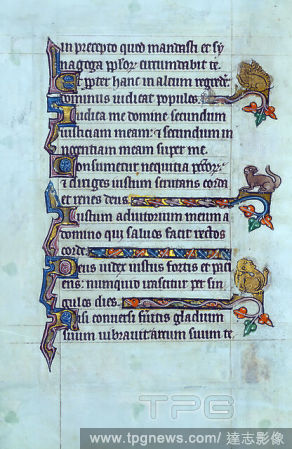 in precepto quod mandasti et sy
nagoga pplor circundabit te.
Et ppter hanc in altum regredere
dominus iudicat populos.
Iudica me domine secundum
iusticiam meam: et secundum in
nocentiam meam super me.
Consumetur nequitia
et diriges iustum scrutans corda
et renes deus.
Iustum adiutorium meum a
domino qui saluos facit rectos
corde.
Deus iudex iustus fortis et paci
ens: numquid irascitur per sin
gulos dies.
Nisi conuersi gladium
suum uibrauit arcum suum te
TPG
www.tpgnews.com/ 達志影像